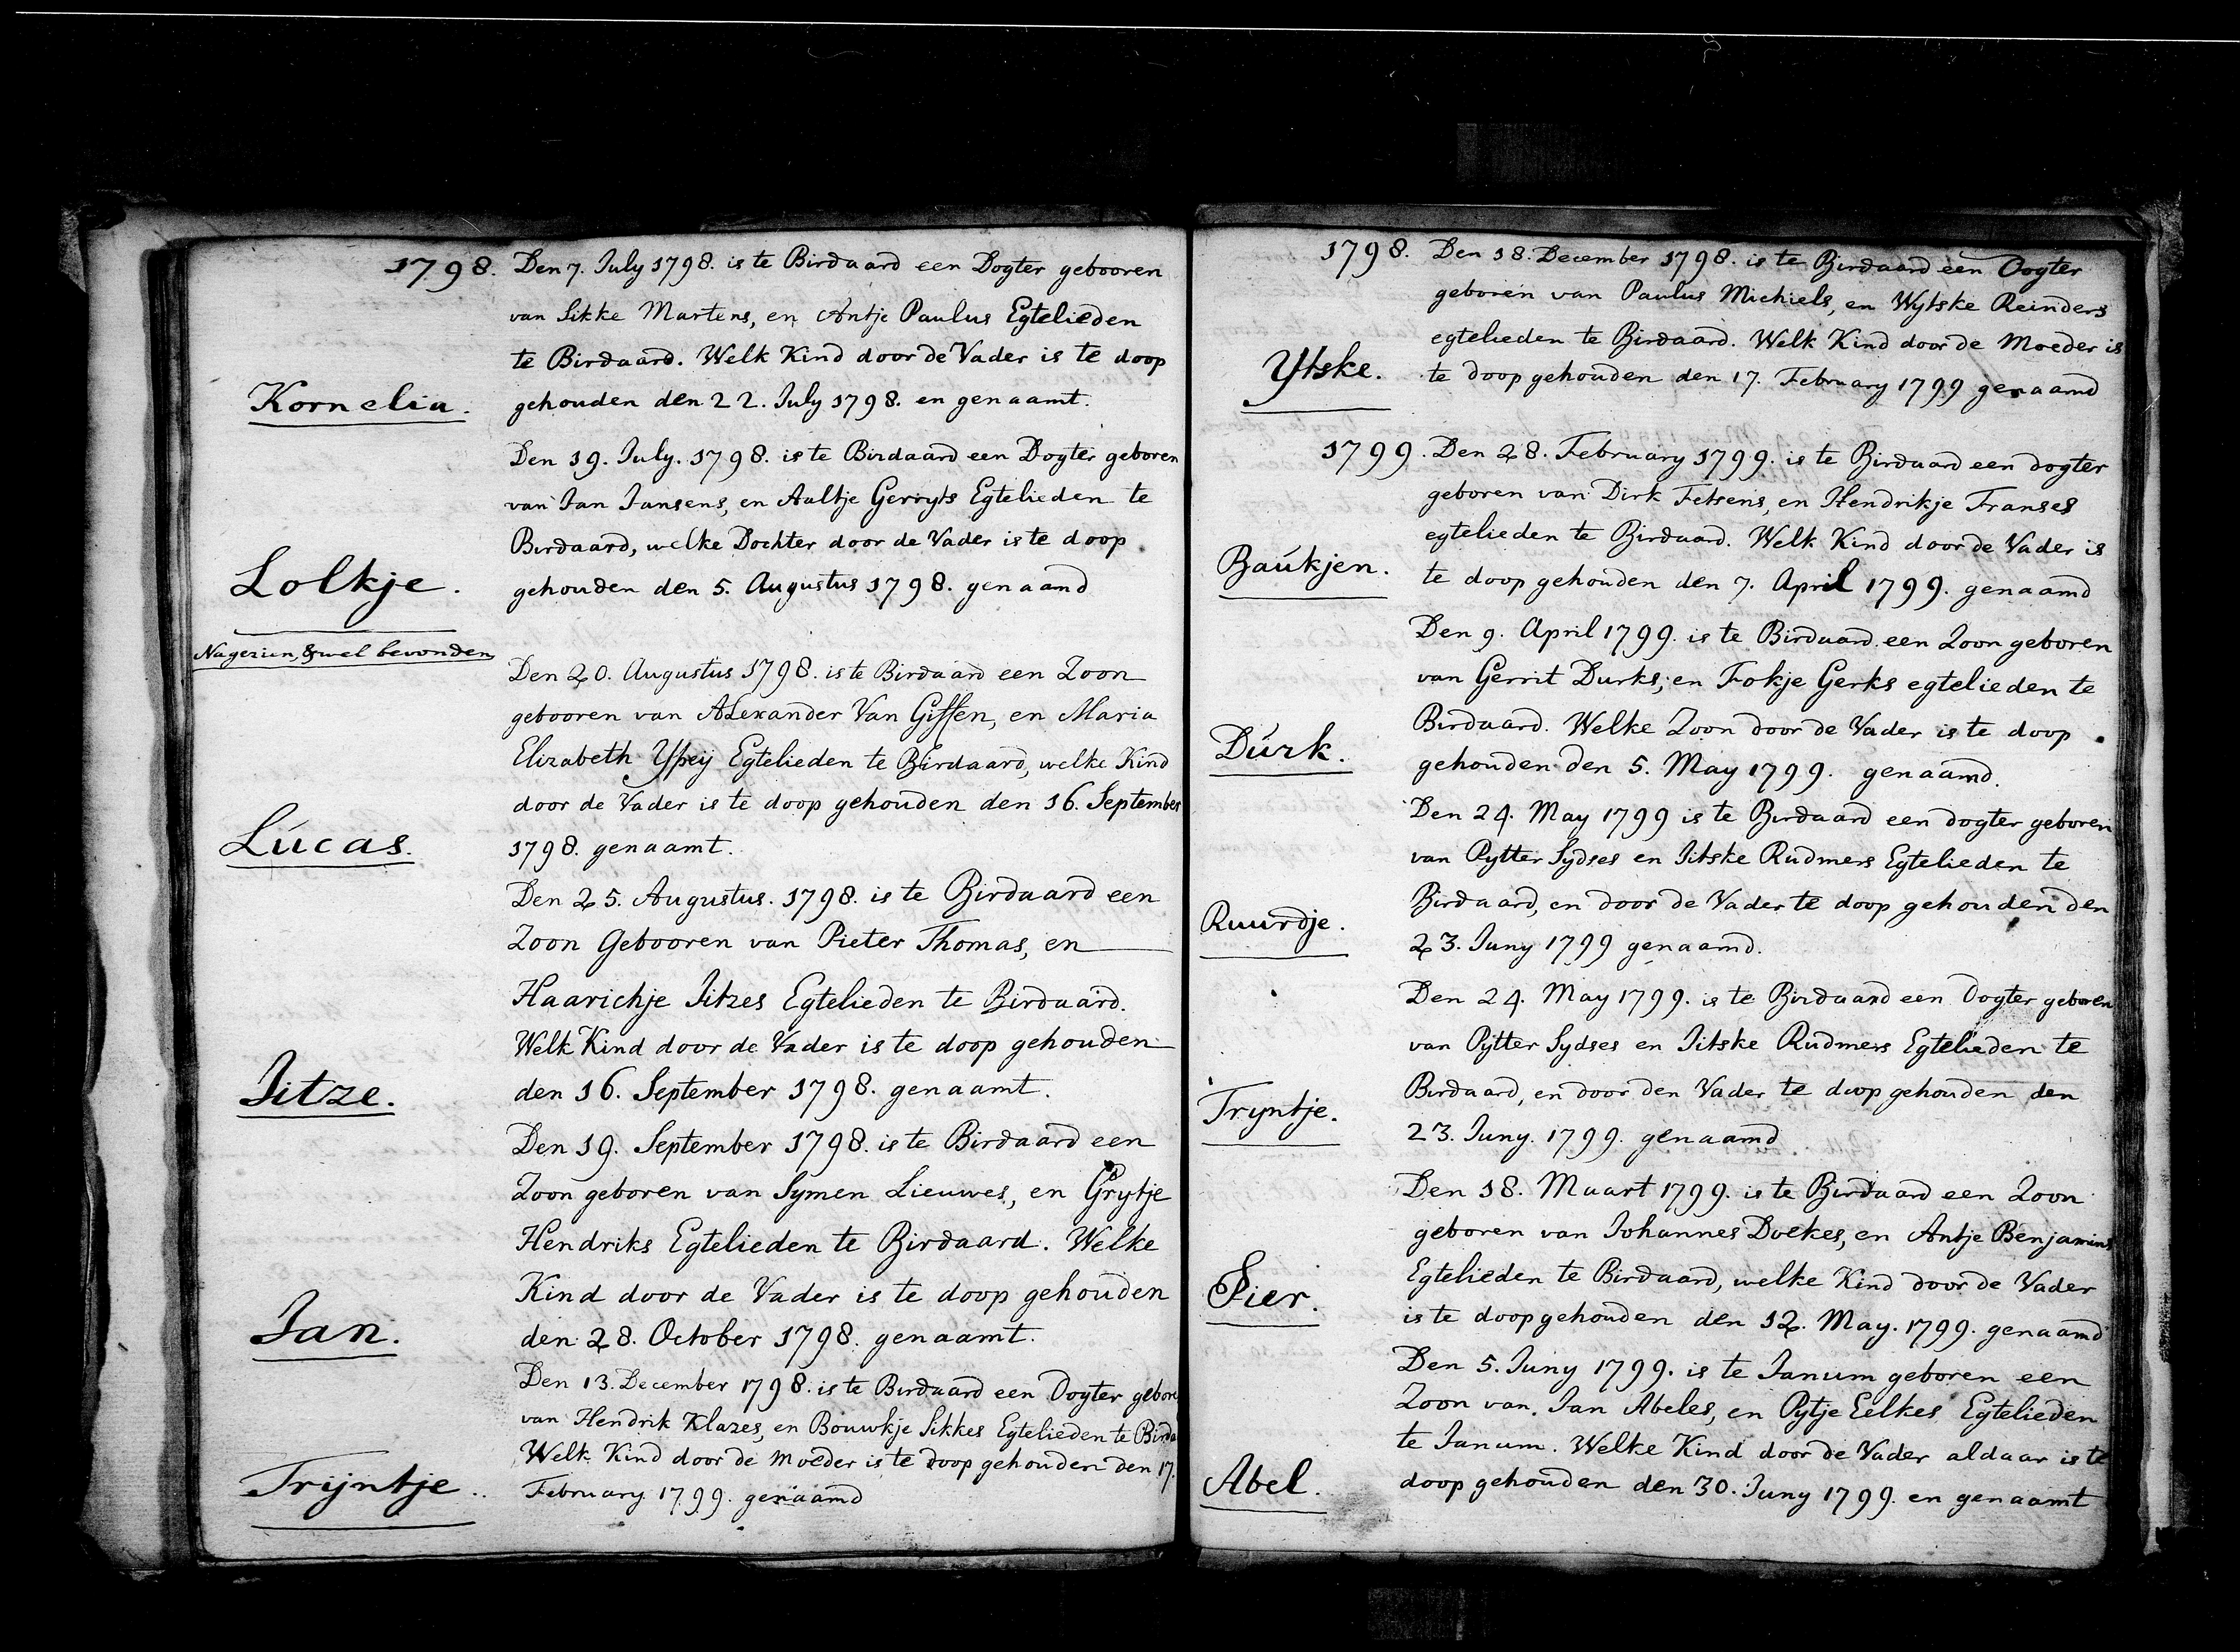 1798. Den 7. July 1798. is te Birdaard een Dogter gebooren
van Sikke Martens, en Antje Paulus Egtelieden
te Birdaard. Welk Kind door de Vader is te doop
Kornelia. gehouden den 22. July 1798. en genaamt.
Den 19. July. 1798. is te Birdaard een Dogter geboren
van Jan Jansens, en Aaltje Gerryts Egtelieden te
Birdaard, welke Dochter door de Vader is te doop
Lolkje. gehouden den 5. Augustus 1798. genaamd
Nagezien, & wel bevonden
Den 20. Augustus 1798. is te Birdaard een Zoon
gebooren van Alexander Van Giffen, en Maria
Elizabeth Ypeij Egtelieden te Birdaard, welke Kind
door de Vader is te doop gehouden den 16. September
Lúcas. 1798. genaamt.
Den 25. Augustus. 1798. is te Birdaard een
Zoon Gebooren van Pieter Thomas, en
Haarichje Jitzes Egtelieden te Birdaard.
Welk Kind door de Vader is te doop gehouden
Jitze. den 16. September 1798. genaamt.
Den 19. September 1798. is te Birdaard een
Zoon geboren van Symen Lieuwes, en Grytje
Hendriks Egtelieden te Birdaard. Welke
Kind door de Vader is te doop gehouden
Jan. den 28. October 1798. genaamt.
Den 13. December 1798. is te Birdaard een Dogter gebore
van Hendrik Klazes, en Bouwkje Sikkes Egtelieden te Birda
Welk Kind door de Moeder is te doop gehouden den 17.
Trijntje. February 1799. genaamd
1798. Den 18. December 1798. is te Birdaard een Dogter
geboren van Paulus Michiels, en Wytske Reinders
egtelieden te Birdaard. Welk Kind door de Moeder is
Ytske. te doop gehouden den 17. February 1799 genaamd
1799. Den 28. February 1799. is te Birdaard een dogter
geboren van Dirk Fetsens, en Hendrikje Franses
egtelieden te Birdaard. Welk Kind door de Vader is
Baúkjen. te doop gehouden den 7. April 1799. genaamd
Den 9. April 1799. is te Birdaard een Zoon geboren
van Gerrit Durks, en Fokje Gerks egtelieden te
Birdaard. Welke Zoon door de Vader is te doop
Dúrk. gehouden den 5. May 1799. genaamd.
Den 24. May 1799 is te Birdaard een dogter geboren
van Pytter Sydses en Jitske Rudmers Egtelieden te
Birdaard, en door de Vader te doop gehouden den
Ruurdje. 23. Juny 1799 genaamd.
Den 24. May 1799. is te Birdaard een Dogter geboren
van Pytter Sydses en Jitske Rudmers Egtelieden te
Birdaard, en door den Vader te doop gehouden den
Tryntje. 23. Juny. 1799. genaamd
Den 18. Maart 1799. is te Birdaard een Zoon
geboren van Johannes Doekes, en Antje Benjamins
Egtelieden te Birdaard, welke Kind door de Vader
Pier. is te doop gehouden den 12. May. 1799. genaamd
Den 5. Juny 1799. is te Janum geboren een
Zoon van Jan Abeles, en Pytje Eelkes Egtelieden
te Janum. Welke Kind door de Vader aldaar is te
Abel. doop gehouden den 30. Juny 1799. en genaamt